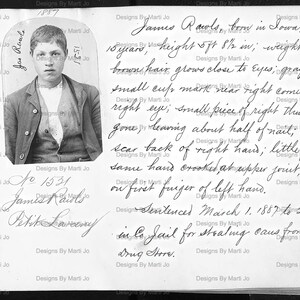 1887
Jas Rawls
1531
James Rawls, born in Iowa
18 years, height 5 ft 8½ in; weight
brown hair grows close to eyes, gray
small cup mark near right corner
right eye; small piece of right thu
gone, leaving about half of nail,
scar back of right hand; little
same hand crooked at upper joint,
on first finger of left hand.
Sentenced March 1, 1887 to
in Co. Jail for stealing cans from
Drug Store.
No 1531
James Rawls
Petit Larceny
Designs By Marti Jo